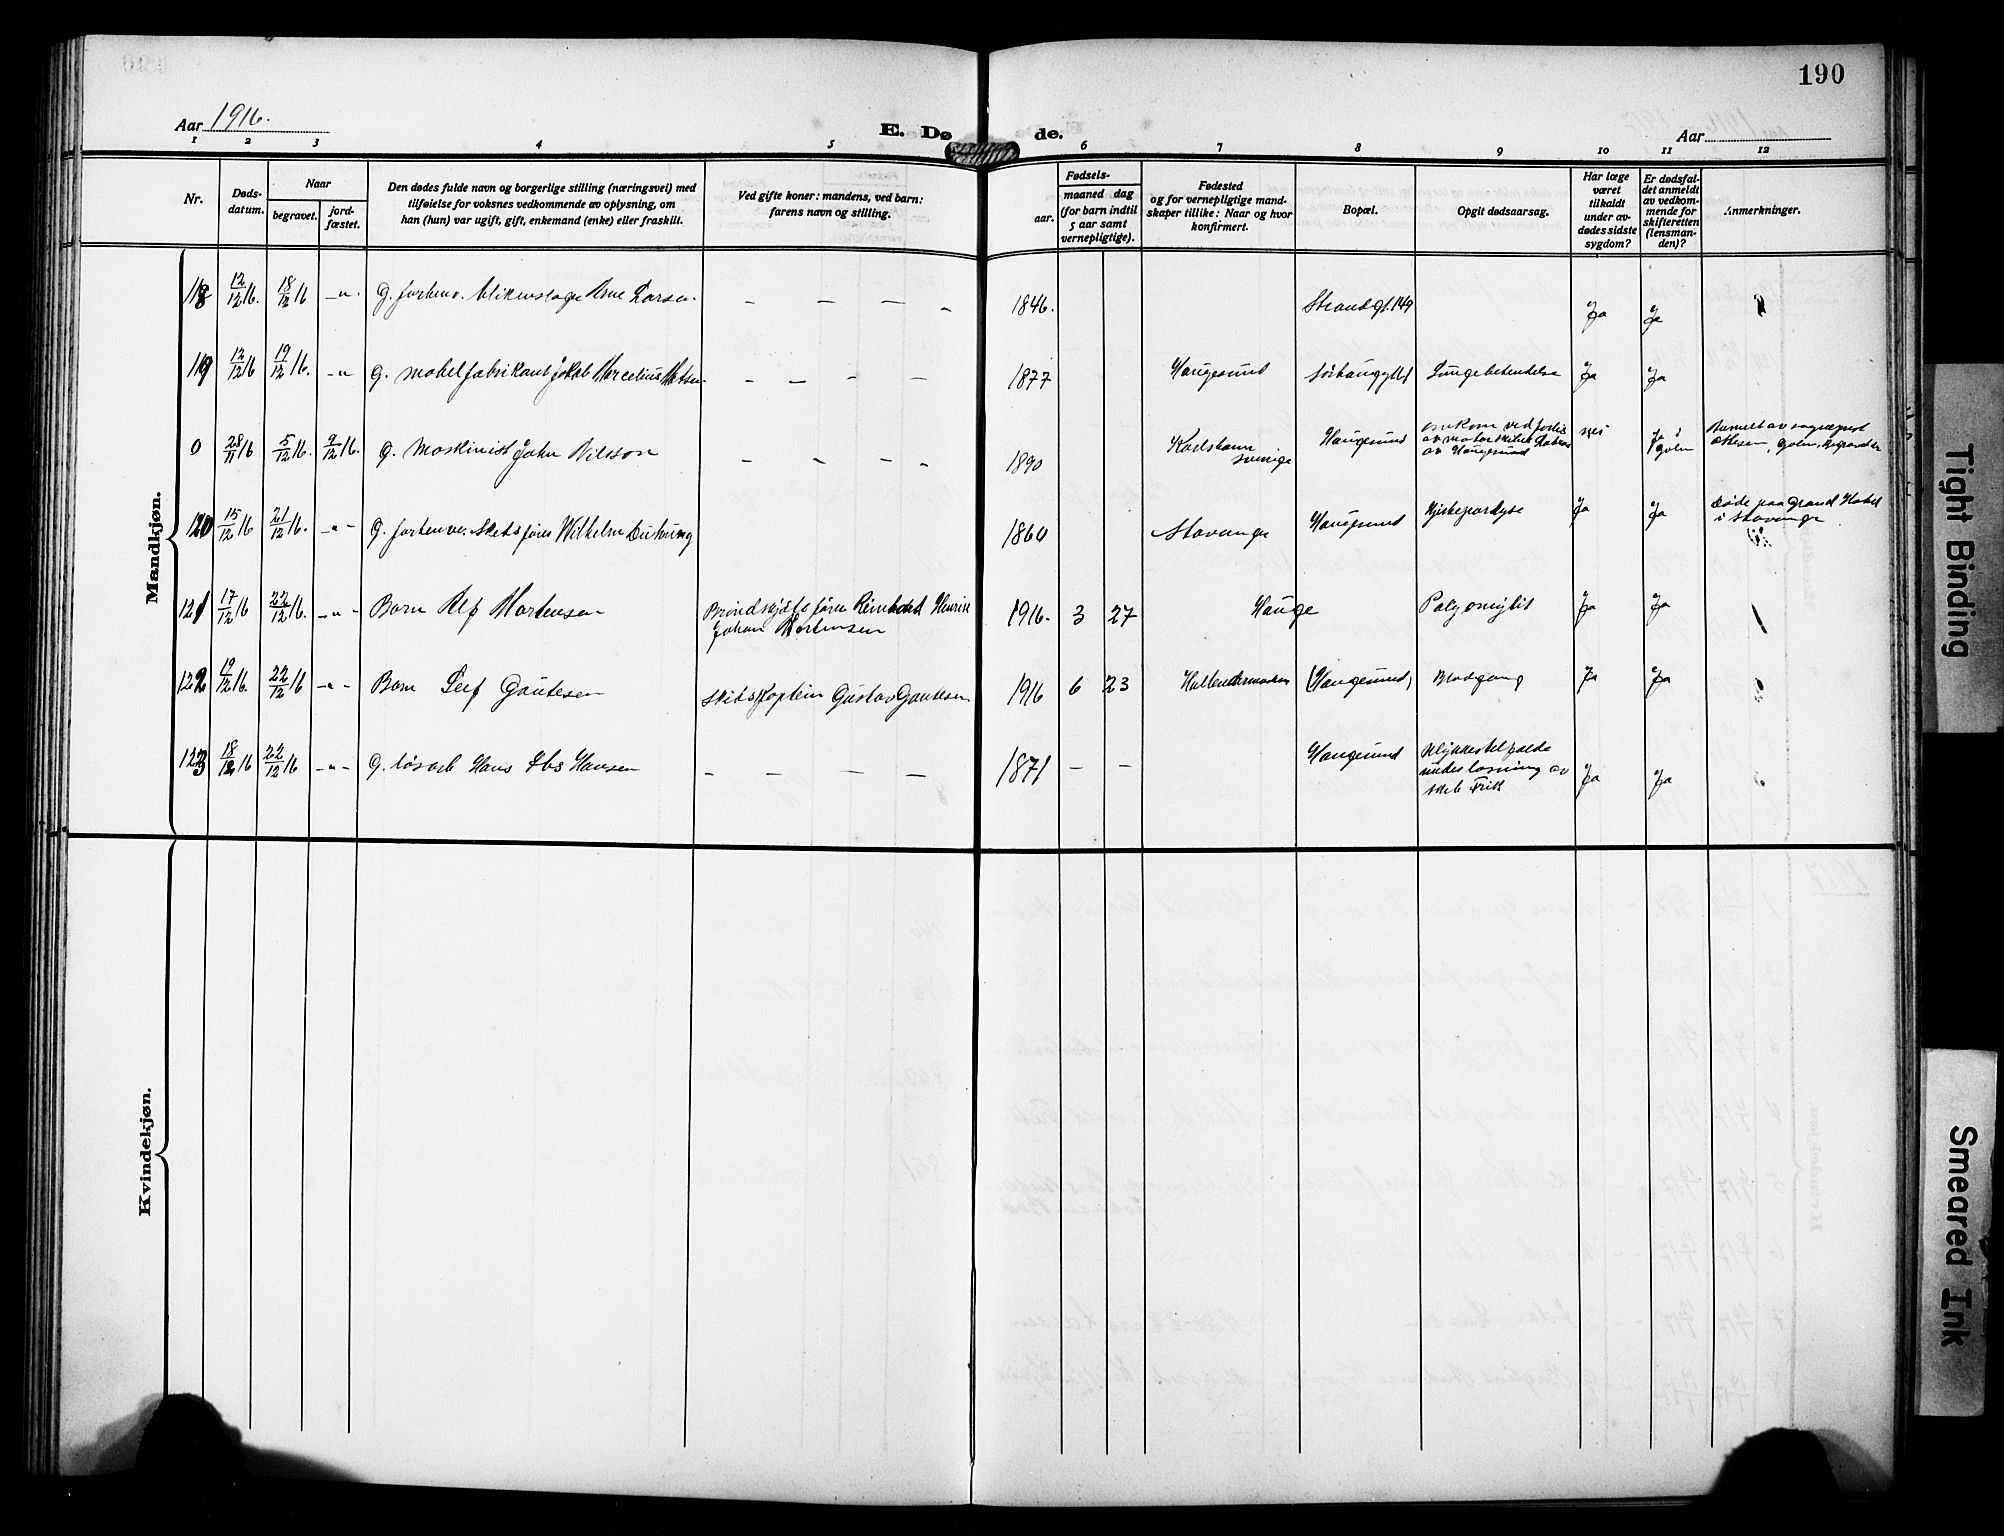 190
Aar 1916.
E. Døde.
Aar
1 2 3 4 5 6 7 8 9 10 11 12
Nr.
Døds-
datum.
Naar
begravet.
jord-
fæstet.
Den dødes fulde navn og borgerlige stilling (næringsvei) med
tilføielse for voksnes vedkommende av oplysning, om
han (hun) var ugift, gift, enkemand (enke) eller fraskilt.
Ved gifte koner: mandens, ved barn:
farens navn og stilling.
Fødsels-
aar.
maaned dag
(for barn indtil
5 aar samt
vernepligtige).
Fødested
og for vernepligtige mand-
skaper tillike: Naar og hvor
konfirmert.
Bopæl.
Opgit dødsaarsag.
Har læge
været
tilkaldt
under av-
dødes sidste
sygdom?
Er dødsfal-
det anmeldt
av vedkom-
mende for
skifteretten
(lensman-
den)?
Anmerkninger.
Mandkjøn.
118 12/12 16. 18/12 16 -"- G. forhenv. blikenslager Arne Larsen - - - - 1846. Strandgt. 149 Ja Ja
119 12/12 16 19/12 16. -"- G. møbelfabrikant Jakob Marcelius - - - - 1877 Haugesund Lungebetendelse Ja Ja
0 28/11 16 5/12 16. 9/12 16. G. Maskinist John Nilsson - - - - 1890 Karlshamn Sverige Haugesund omkom ved forlis
av motorskibet
av Haugesund nei Ja i
120 15/12 16 21/12 16. -"- G. forhenv. Skibsfører Wilhelm 1860 Stavanger Haugesund Ja Ja Døde paa Grand Hotel
i Stavanger
121 17/12 16 22/12 16. -"- Barn Alf Mortensen Reinhold Henrik
Johan Mortensen 1916. 3 27 Hauge Ja Ja
122 19/12 16. 22/12 16 -"- Barn Leif Gautesen Skibskaptein Gustav Gautesen 1916 6 23 (Haugesund) Ja Ja
123 18/12 16 22/12 16 -"- G. løsarb Hans Hansen - - - - 1871 - - Haugesund Ulykkestilfælde
under losning av
skib Ja Ja
Kvindekjøn.
Tight Binding
Smeared Ink